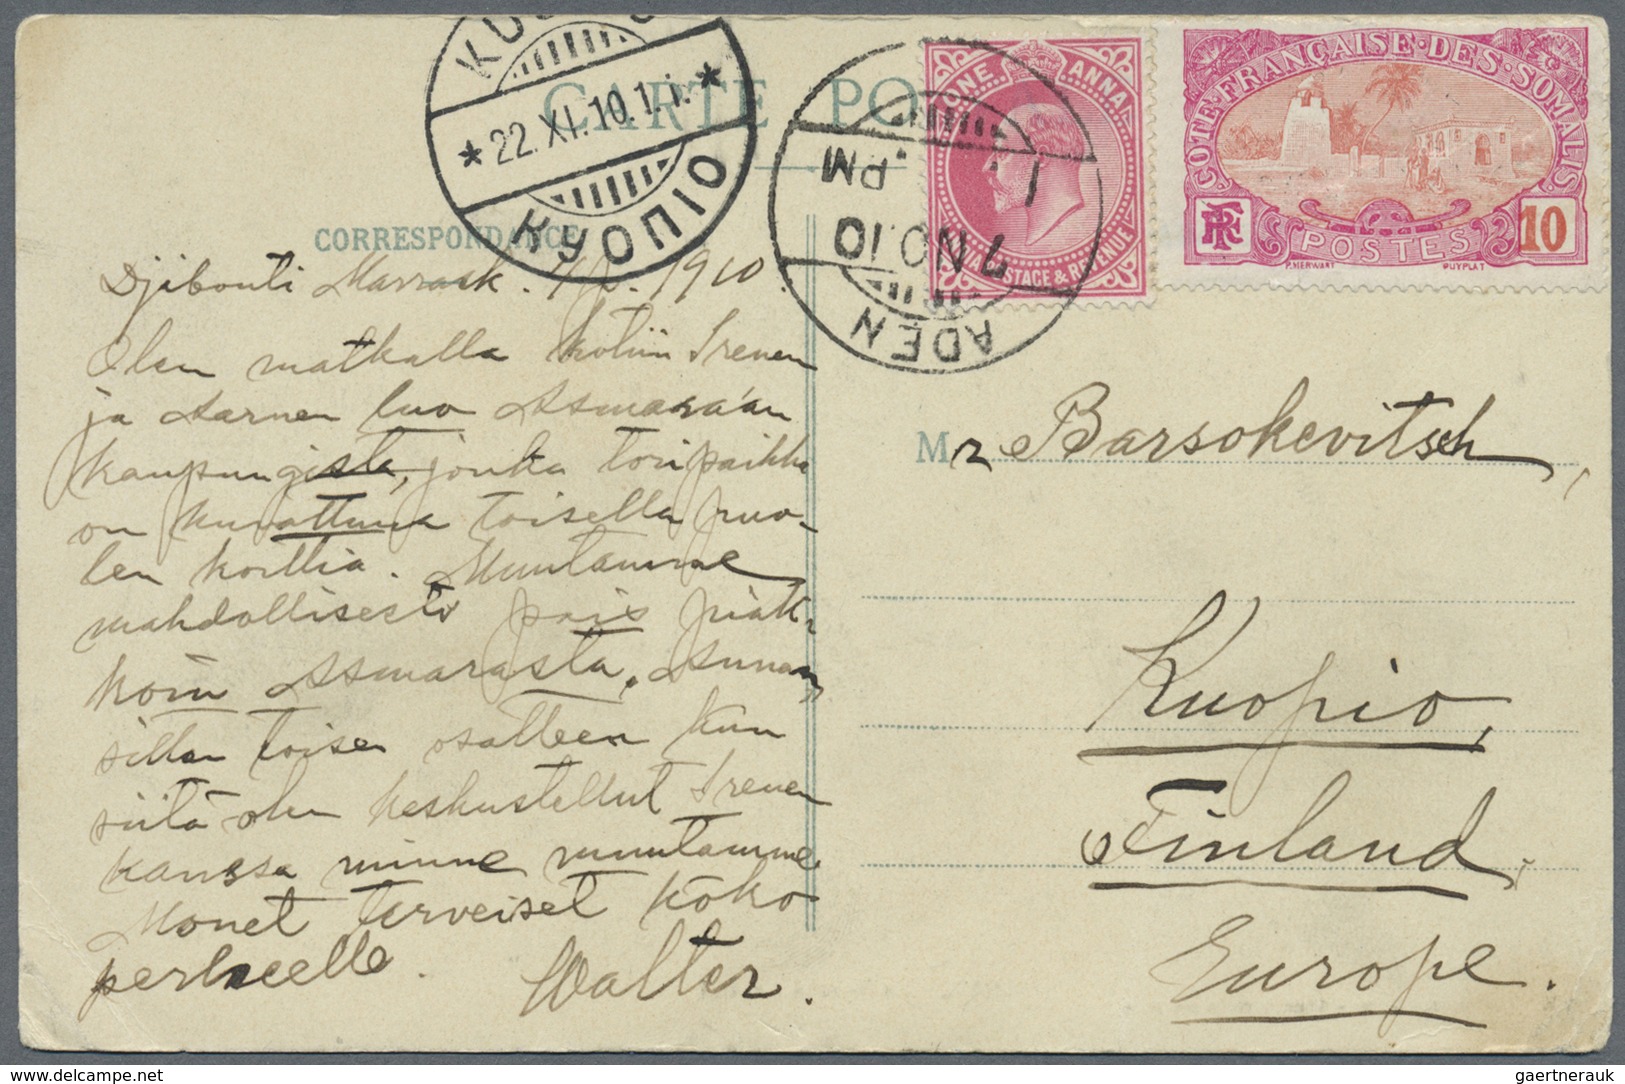 CARTE PO
CORRESPONDANCE
KUO
22.XI.10.1.i.
КУОПІО
ADEN
7 NO.10
1. PM
ONE ANNA
INDIA POSTAGE & REVENUE
COTE·FRANÇAISE·DES·SOMALIS
RF
POSTES
10
P.MERWART
PUYPLAT
Djibouti Marrask. 1910.
Olen matkalla kotiin Irenen
ja Aarnen luo Asmara'an
kaupungista, jonka toripaikka
on kuvattuna toisella puo-
len korttia. Muutamme
mahdollisesti pois piak-
koin Asmarasta. Annan
sitten toisen osotteen kun
siitä olen keskustellut Irenen
kanssa minne muutamme.
Monet terveiset koko
perheelle. Walter.
Mr Barsokevitsch,
Kuopio,
Finland,
Europe.
gaertnerauk